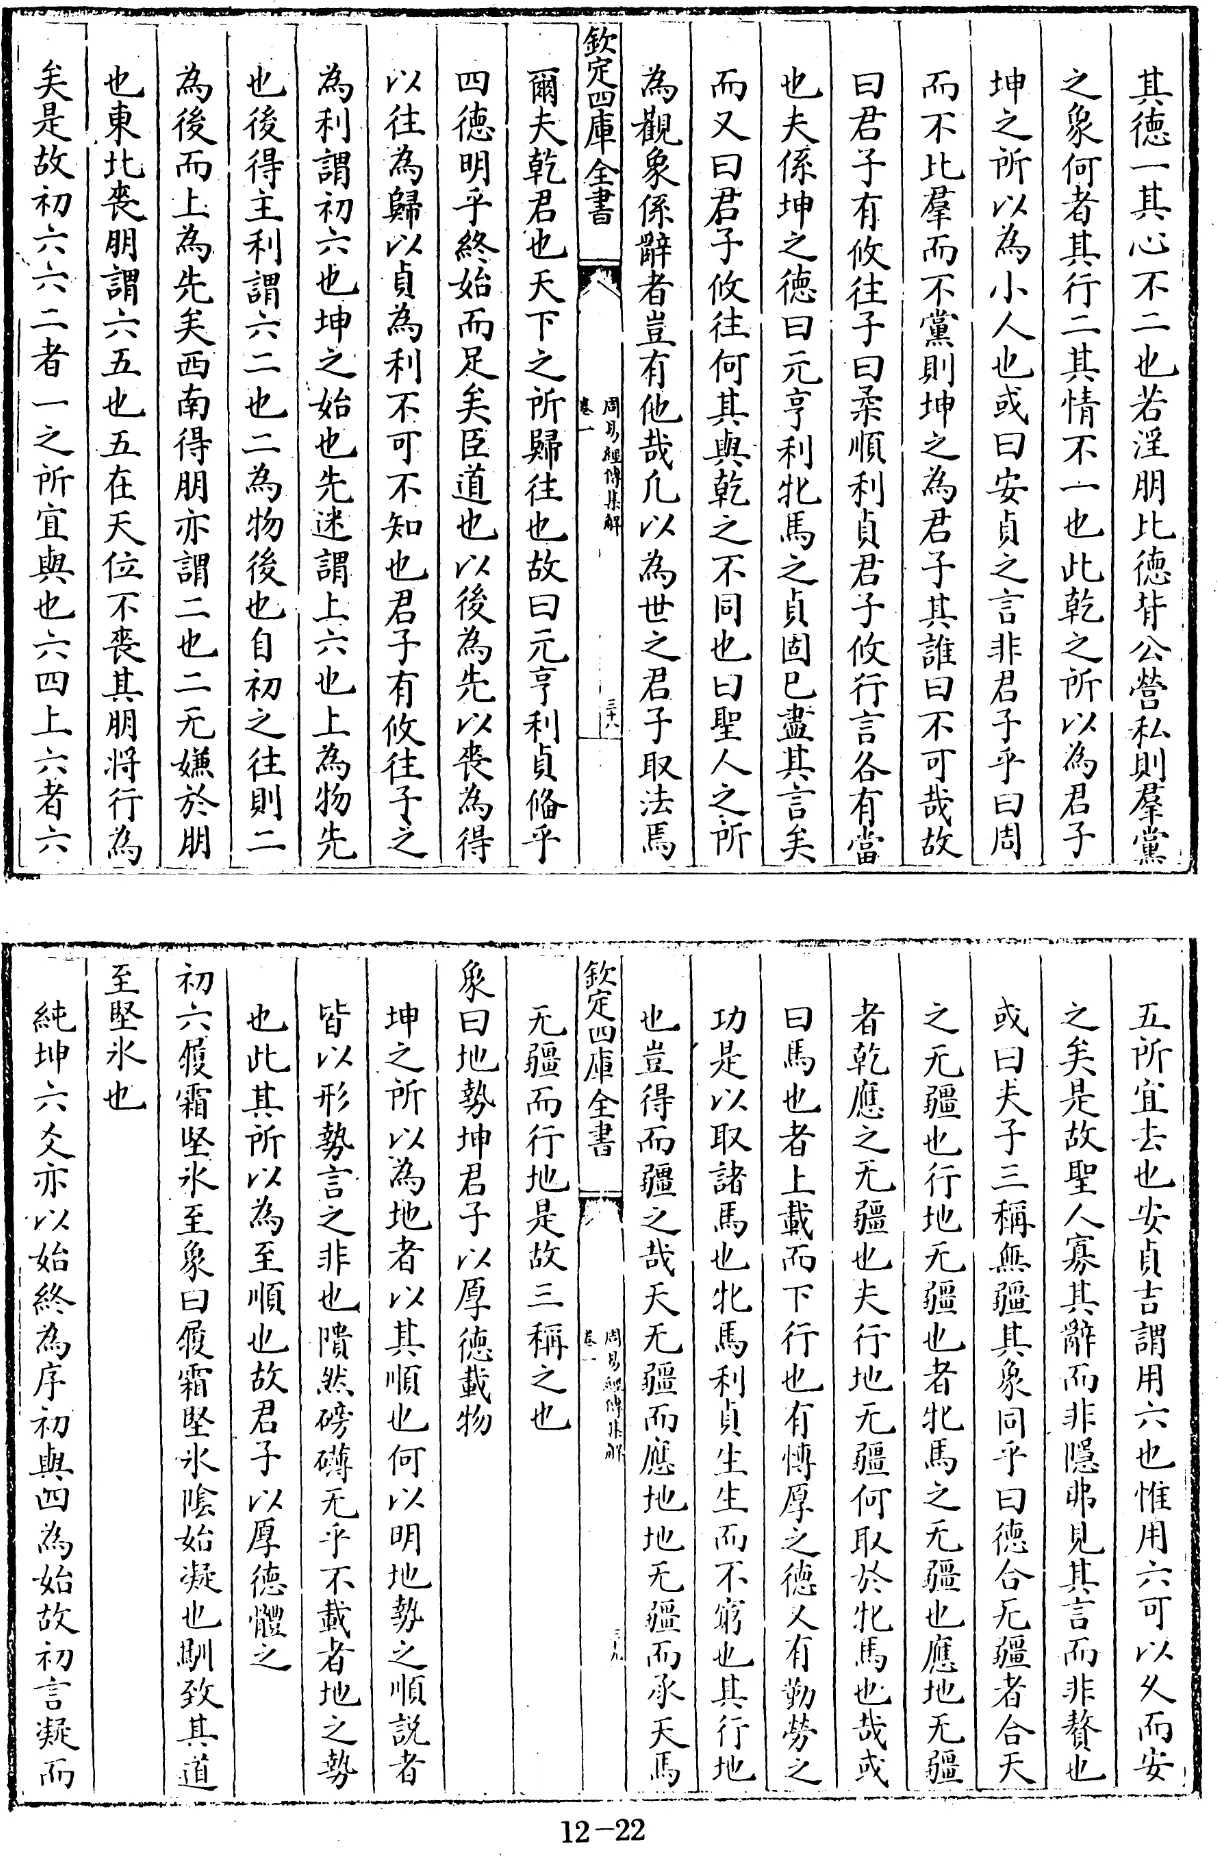 其德一其心不二也若淫朋比德背公營私則羣黨
之象何者其行二其情不一也此乾之所以為君子
坤之所以為小人也或曰安貞之言非君子乎曰周
而不比羣而不黨則坤之為君子其誰曰不可哉故
曰君子有攸往子曰柔順利貞君子攸行言各有當
也夫係坤之德曰元亨利牝馬之貞固已盡其言矣
而又曰君子攸往何其與乾之不同也曰聖人之所
為觀象係辭者豈有他哉凡以為世之君子取法焉
欽定四庫全書
周易經傳集解
卷一
三十八
爾夫乾君也天下之所歸往也故曰元亨利貞偹乎
四德明乎終始而足矣臣道也以後為先以喪為得
以往為歸以貞為利不可不知也君子有攸往子之
為利謂初六也坤之始也先迷謂上六也上為物先
也後得主利謂六二也二為物後也自初之往則二
為後而上為先矣西南得朋亦謂二也二无嫌於朋
也東北喪朋謂六五也五在天位不喪其朋將行為
矣是故初六六二者一之所宜與也六四上六者六
五所宜去也安貞吉謂用六也惟用六可以久而安
之矣是故聖人寡其辭而非隱弗見其言而非贅也
或曰夫子三稱無疆其象同乎曰德合无疆者合天
之无疆也行地无疆也者牝馬之无疆也應地无疆
者乾應之无疆也夫行地无疆何取於牝馬也哉或
曰馬也者上載而下行也有慱厚之德又有勤勞之
功是以取諸馬也牝馬利貞生生而不窮也其行地
也豈得而疆之哉天无疆而應地地无疆而承天馬
欽定四庫全書
周易經傳集解
卷一
三十九
无疆而行地是故三稱之也
象曰地勢坤君子以厚德載物
坤之所以為地者以其順也何以明地勢之順説者
皆以形勢言之非也隤然磅礴无乎不載者地之勢
也此其所以為至順也故君子以厚德體之
初六履霜堅氷至象曰履霜堅氷陰始凝也馴致其道
至堅氷也
純坤六爻亦以始終為序初與四為始故初言凝而
12-22